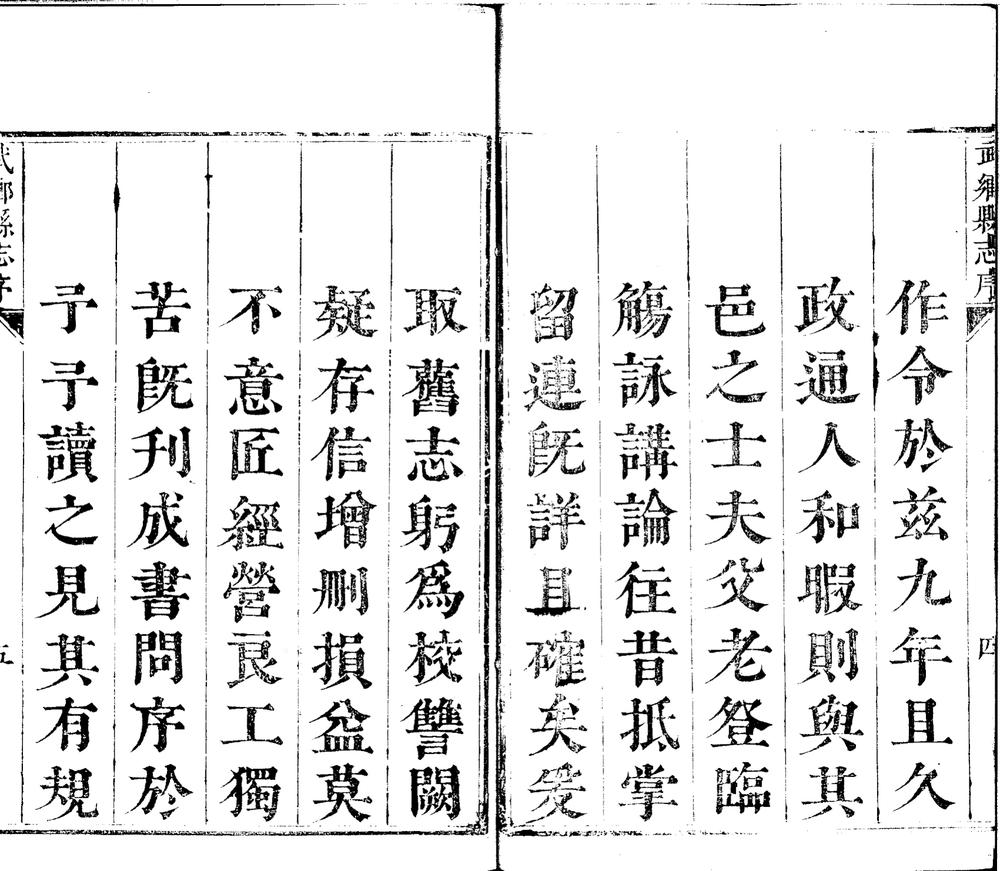 武鄉縣志序
四
作令於茲九年且久
政通人和暇則與其
邑之士夫父老登臨
觴詠講論往昔抵掌
留連旣詳且確矣爰
取舊志躬爲校讐闕
疑存信增刪損益莫
不意匠經營良工獨
苦旣刋成書問序於
予予讀之見其有規
武鄉縣志序
五